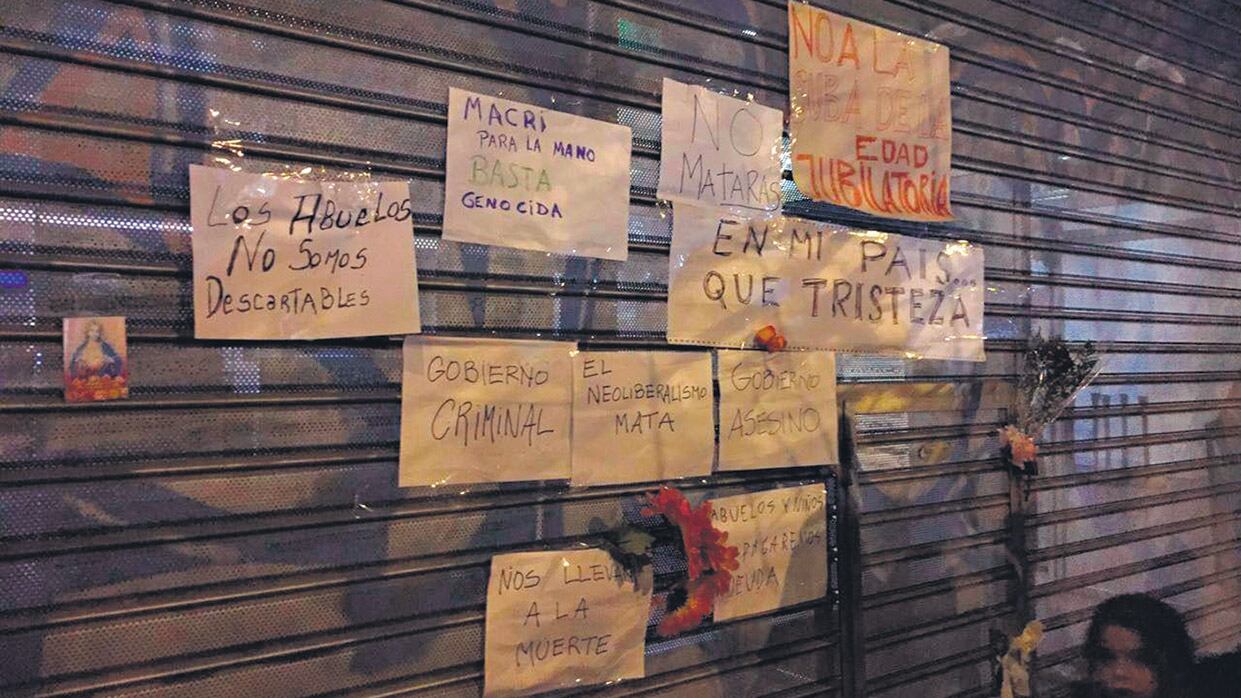 NO A LA
SUBA DE LA
EDAD
JUBILATORIA
MACRI
PARA LA MANO
BASTA
GENOCIDA
NO
MATARAS
LOS ABUELOS
NO SOMOS
DESCARTABLES
EN MI PAIS...
QUE TRISTEZA
GOBIERNO
CRIMINAL
EL
NEOLIBERALISMO
MATA
GOBIERNO
ASESINO
ABUELOS Y NIÑOS
PAGAREMOS
DEUDA
NOS
A LA
MUERTE